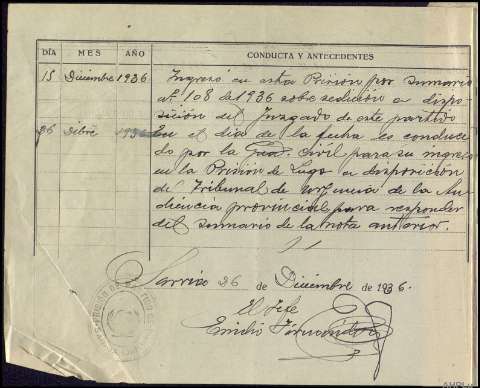 DÍA MES AÑO CONDUCTA Y ANTECEDENTES
15 Diciembre 1936 Ingresó en esta Prision por sumario
nº 108 de 1936 sobre sedición a dispo-
sición del Juzgado de este partido
26 Dibre 1936 En el día de la fecha es conduci-
do por la Guar. Civil para su ingreso
en la Prisión de Lugo a disposición
del Tribunal de Urgencia de la Au-
diencia provincial para responder
del sumario de la nota anterior.
Sarria 26 de Diciembre de 1936.
El Jefe
Emilio Fernández